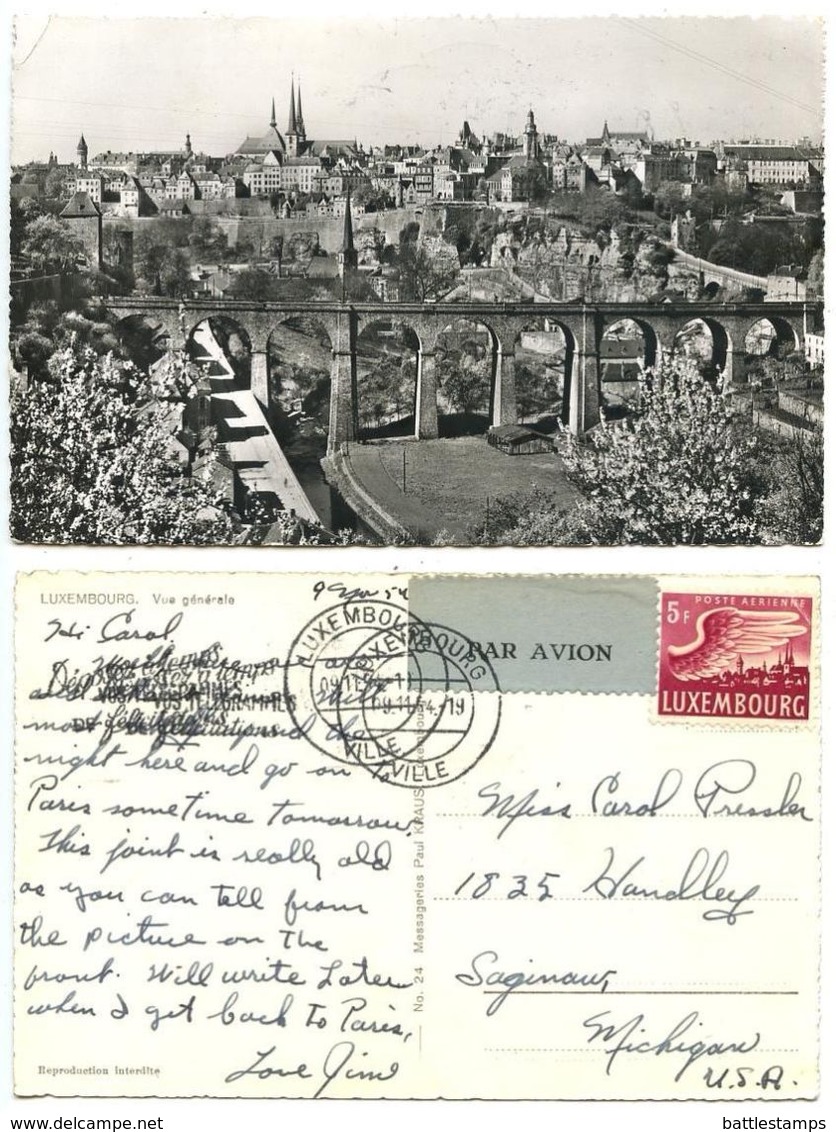 LUXEMBOURG. Vue générale
9 Nov 54
Hi Carol
PAR AVION
5F POSTE AERIENNE
LUXEMBOURG
LUXEMBOURG
09.11.54-19
VILLE
LUXEMBOURG
09.11.54-19
VILLE
VOS TELEGRAMMES
DE felicitations
the
night here and go on to
Paris sometime tomorrow.
This joint is really old
as you can tell from
the picture on the
front. Will write later
when I get back to Paris,
Love Jim
Reproduction interdite
No. 24 Messageries Paul KRAUS, Luxembourg
Miss Carol Pressler
1835 Handley
Saginaw,
Michigan
U.S.A.
delcampe.net
battlestamps